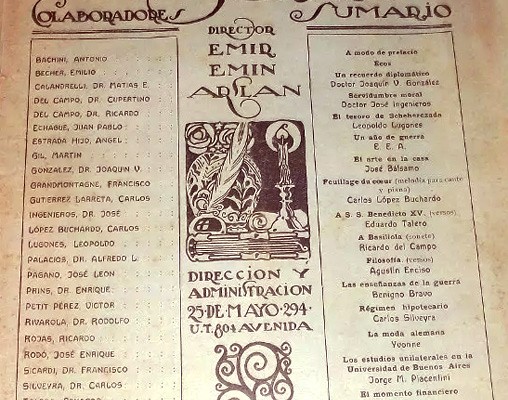 COLABORADORES
BACHINI, ANTONIO
BECHER, EMILIO
CALANDRELLI, DR. MATIAS E.
DEL CAMPO, DR. CUPERTINO
DEL CAMPO, DR. RICARDO
ECHAGUE, JUAN PABLO
ESTRADA HIJO, ANGEL
GIL, MARTIN
GONZALEZ, DR. JOAQUIN V.
GRANDMONTAGNE, FRANCISCO
GUTIERREZ LARRETA, CARLOS
INGENIEROS, DR. JOSÉ
LÓPEZ BUCHARDO, CARLOS
LUGONES, LEOPOLDO
PALACIOS, DR. ALFREDO L.
PAGANO, JOSÉ LEON
PRINS, DR. ENRIQUE
PETIT PÉREZ, VICTOR
RIVAROLA, DR. RODOLFO
ROJAS, RICARDO
RODÓ, JOSÉ ENRIQUE
SICARDI, DR. FRANCISCO
SILVEYRA, DR. CARLOS
DIRECTOR
EMIR
EMIN
ARSLAN
DIRECCION Y
ADMINISTRACION
25·DE·MAYO·294·
U.T. 804 AVENIDA
SUMARIO
A modo de prefacio
Ecos
Un recuerdo diplomático
Doctor Joaquín V. González
Servidumbre moral
Doctor José Ingenieros
El tesoro de Scheherezada
Leopoldo Lugones
Un año de guerra
E. E. A.
El arte en la casa
José Bálsamo
Feuillage du cœur (melodía para canto
y piano)
Carlos López Buchardo
A S. S. Benedicto XV. (versos)
Eduardo Talero
A Basiliola (soneto)
Ricardo del Campo
Filosofía (versos)
Agustín Enciso
Las enseñanzas de la guerra
Benigno Bravo
Régimen hipotecario
Carlos Silveyra
La moda alemana
Yvonne
Los estudios unilaterales en la
Universidad de Buenos Aires
Jorge M. Piacentini
El momento financiero